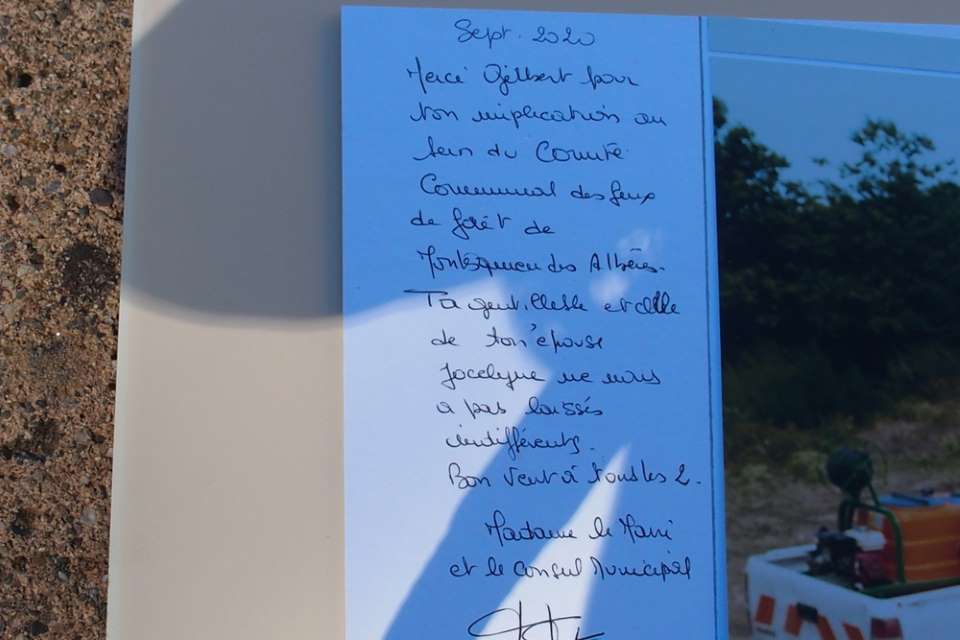 Sept. 2020
Merci Gilbert pour
ton implication au
sein du Comité
Communal des feux
de forêt de
Montesquieu des Albères.
Ta gentillesse et celle
de ton épouse
Jocelyne ne nous
a pas laissés
indifférents.
Bon vent à tous les 2.
Madame le Maire
et le Conseil Municipal